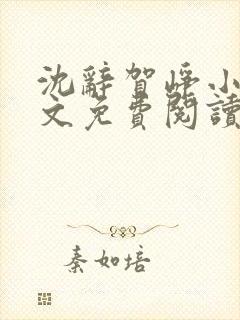 沈辭賀崢小
文免費閱讀
秦如培